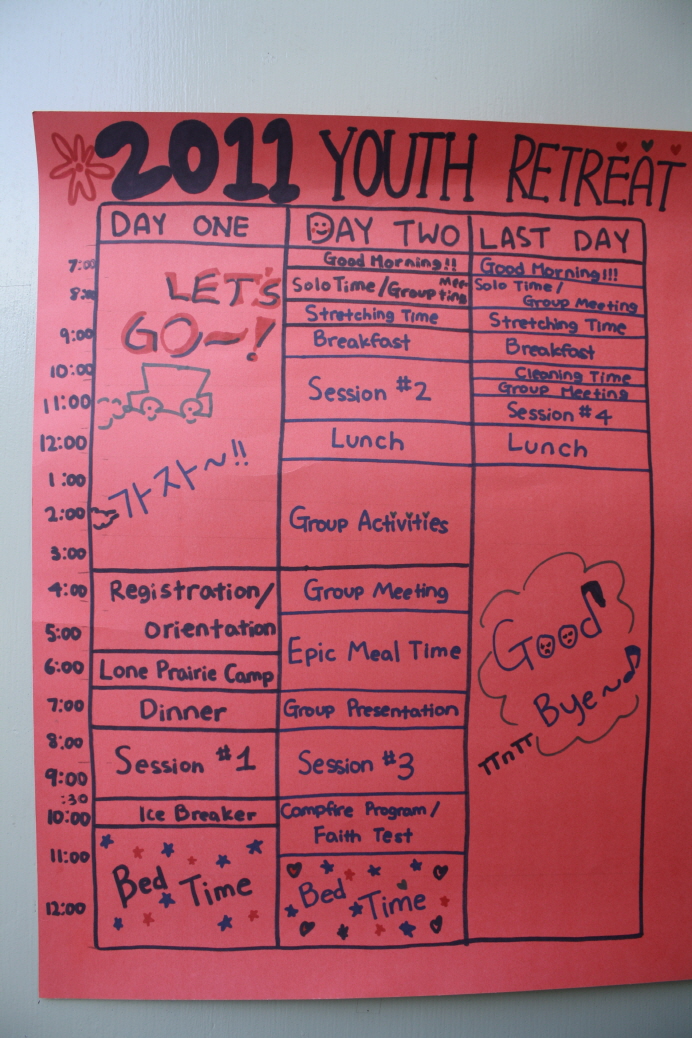 2011 YOUTH RETREAT
DAY ONE
DAY TWO
LAST DAY
7:00
8:00
9:00
10:00
11:00
12:00
1:00
2:00
3:00
4:00
5:00
6:00
7:00
8:00
9:00
:30
10:00
11:00
12:00
LET'S
GO~!
가자~!!
Registration/
Orientation
Lone Prairie Camp
Dinner
Session #1
Ice Breaker
Bed Time
Good Morning!!
Solo Time/Group Meeting
Stretching Time
Breakfast
Session #2
Lunch
Group Activities
Group Meeting
Epic Meal Time
Group Presentation
Session #3
Campfire Program/
Faith Test
Bed Time
Good Morning!!!
Solo Time/
Group Meeting
Stretching Time
Breakfast
Cleaning Time
Group Meeting
Session #4
Lunch
Good
Bye~
ㅠㅠ